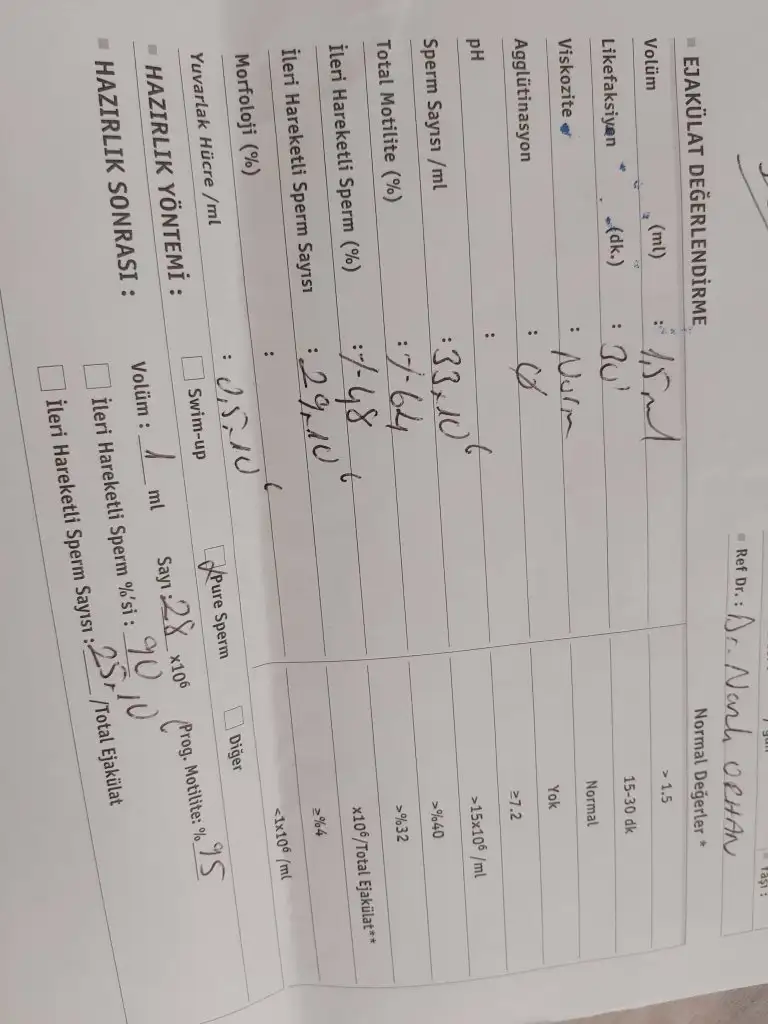 ■ Ref Dr. : Dr. Narlı ORHAN
■ EJAKÜLAT DEĞERLENDİRME Normal Değerler *
Volüm (ml) : 1,5 ml > 1.5
Likefaksiyon (dk.) : 30' 15-30 dk
Viskozite : Norm Normal
Agglütinasyon : Ø Yok
pH : ≥7.2
Sperm Sayısı /ml : 33x10⁶ >15x10⁶ /ml
Total Motilite (%) : %64 >%40
İleri Hareketli Sperm (%) : %48 >%32
İleri Hareketli Sperm Sayısı : 24x10⁶ x10⁶/Total Ejakülat**
Morfoloji (%) : ≥%4
Yuvarlak Hücre /ml : 0,5x10⁶ <1x10⁶ /ml
■ HAZIRLIK YÖNTEMİ : Swim-up Pure Sperm Diğer
■ HAZIRLIK SONRASI : Volüm : 1 ml Sayı : 28 x10⁶ Prog. Motilite: % 95
İleri Hareketli Sperm %'si : 90
İleri Hareketli Sperm Sayısı : 25x10⁶ /Total Ejakülat